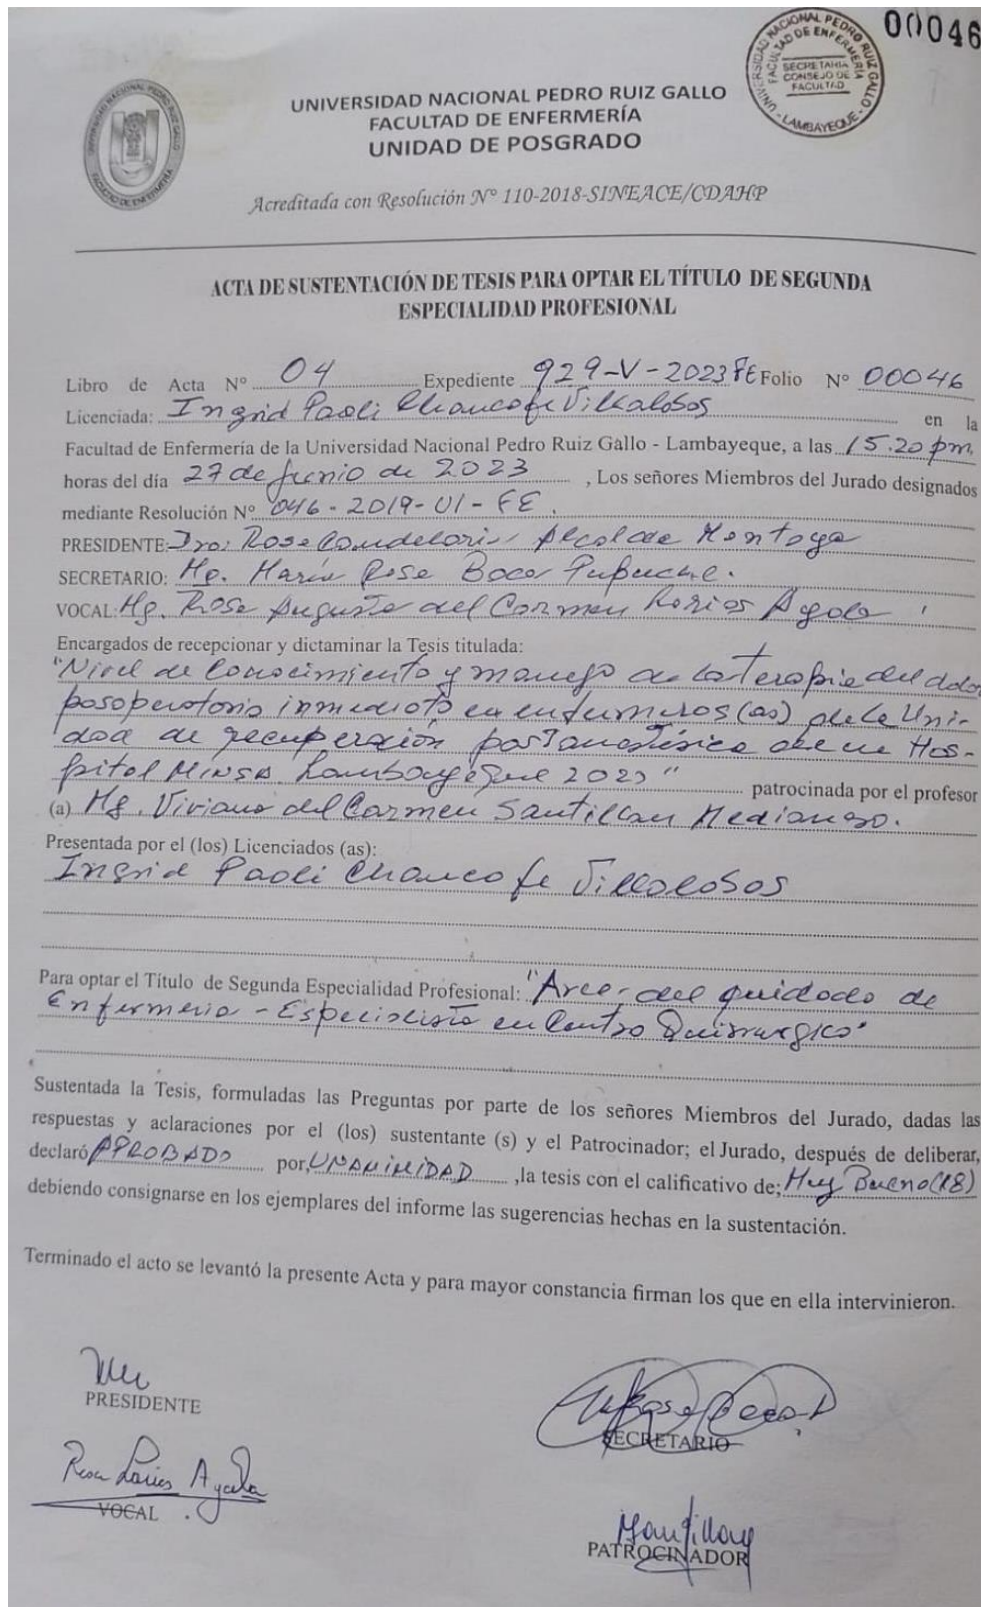 00046
UNIVERSIDAD NACIONAL PEDRO RUIZ GALLO
FACULTAD DE ENFERMERÍA
SECRETARIA
CONSEJO DE
FACULTAD
LAMBAYEQUE
UNIVERSIDAD NACIONAL PEDRO RUIZ GALLO
FACULTAD DE ENFERMERÍA
UNIVERSIDAD NACIONAL PEDRO RUIZ GALLO
FACULTAD DE ENFERMERÍA
UNIDAD DE POSGRADO
Acreditada con Resolución Nº 110-2018-SINEACE/CDAHP
ACTA DE SUSTENTACIÓN DE TESIS PARA OPTAR EL TÍTULO DE SEGUNDA
ESPECIALIDAD PROFESIONAL
Libro de Acta Nº 04 Expediente 929-V-2023 FE Folio Nº 00046
Licenciada: Ingrid Paoli Chancafe Villalobos en la
Facultad de Enfermería de la Universidad Nacional Pedro Ruiz Gallo - Lambayeque, a las 15.20 pm,
horas del día 27 de junio de 2023 , Los señores Miembros del Jurado designados
mediante Resolución Nº 046-2019-UI-FE.
PRESIDENTE: Dra. Rosa Candelaria Alcalde Montoya
SECRETARIO: Mg. María Rosa Baca Pupuche.
VOCAL: Mg. Rosa Augusta del Carmen Larios Ayala
Encargados de recepcionar y dictaminar la Tesis titulada:
"Nivel de conocimiento y manejo de la terapia del dolor
posoperatorio inmediato en enfermeros(as) de la Uni-
dad de recuperación postanestésica de un Hos-
pital MINSA Lambayeque 2023" patrocinada por el profesor
(a) Mg. Viviana del Carmen Santillan Medianero.
Presentada por el (los) Licenciados (as):
Ingrid Paoli Chancafe Villalobos
Para optar el Título de Segunda Especialidad Profesional: "Area del cuidado de
Enfermeria - Especialista en Centro Quirurgico"
Sustentada la Tesis, formuladas las Preguntas por parte de los señores Miembros del Jurado, dadas las
respuestas y aclaraciones por el (los) sustentante (s) y el Patrocinador; el Jurado, después de deliberar,
declaró APROBADO por, UNANIMIDAD ,la tesis con el calificativo de; Muy Bueno(18)
debiendo consignarse en los ejemplares del informe las sugerencias hechas en la sustentación.
Terminado el acto se levantó la presente Acta y para mayor constancia firman los que en ella intervinieron.
PRESIDENTE
SECRETARIO
Rosa Larios Ayala
VOCAL
PATROCINADOR